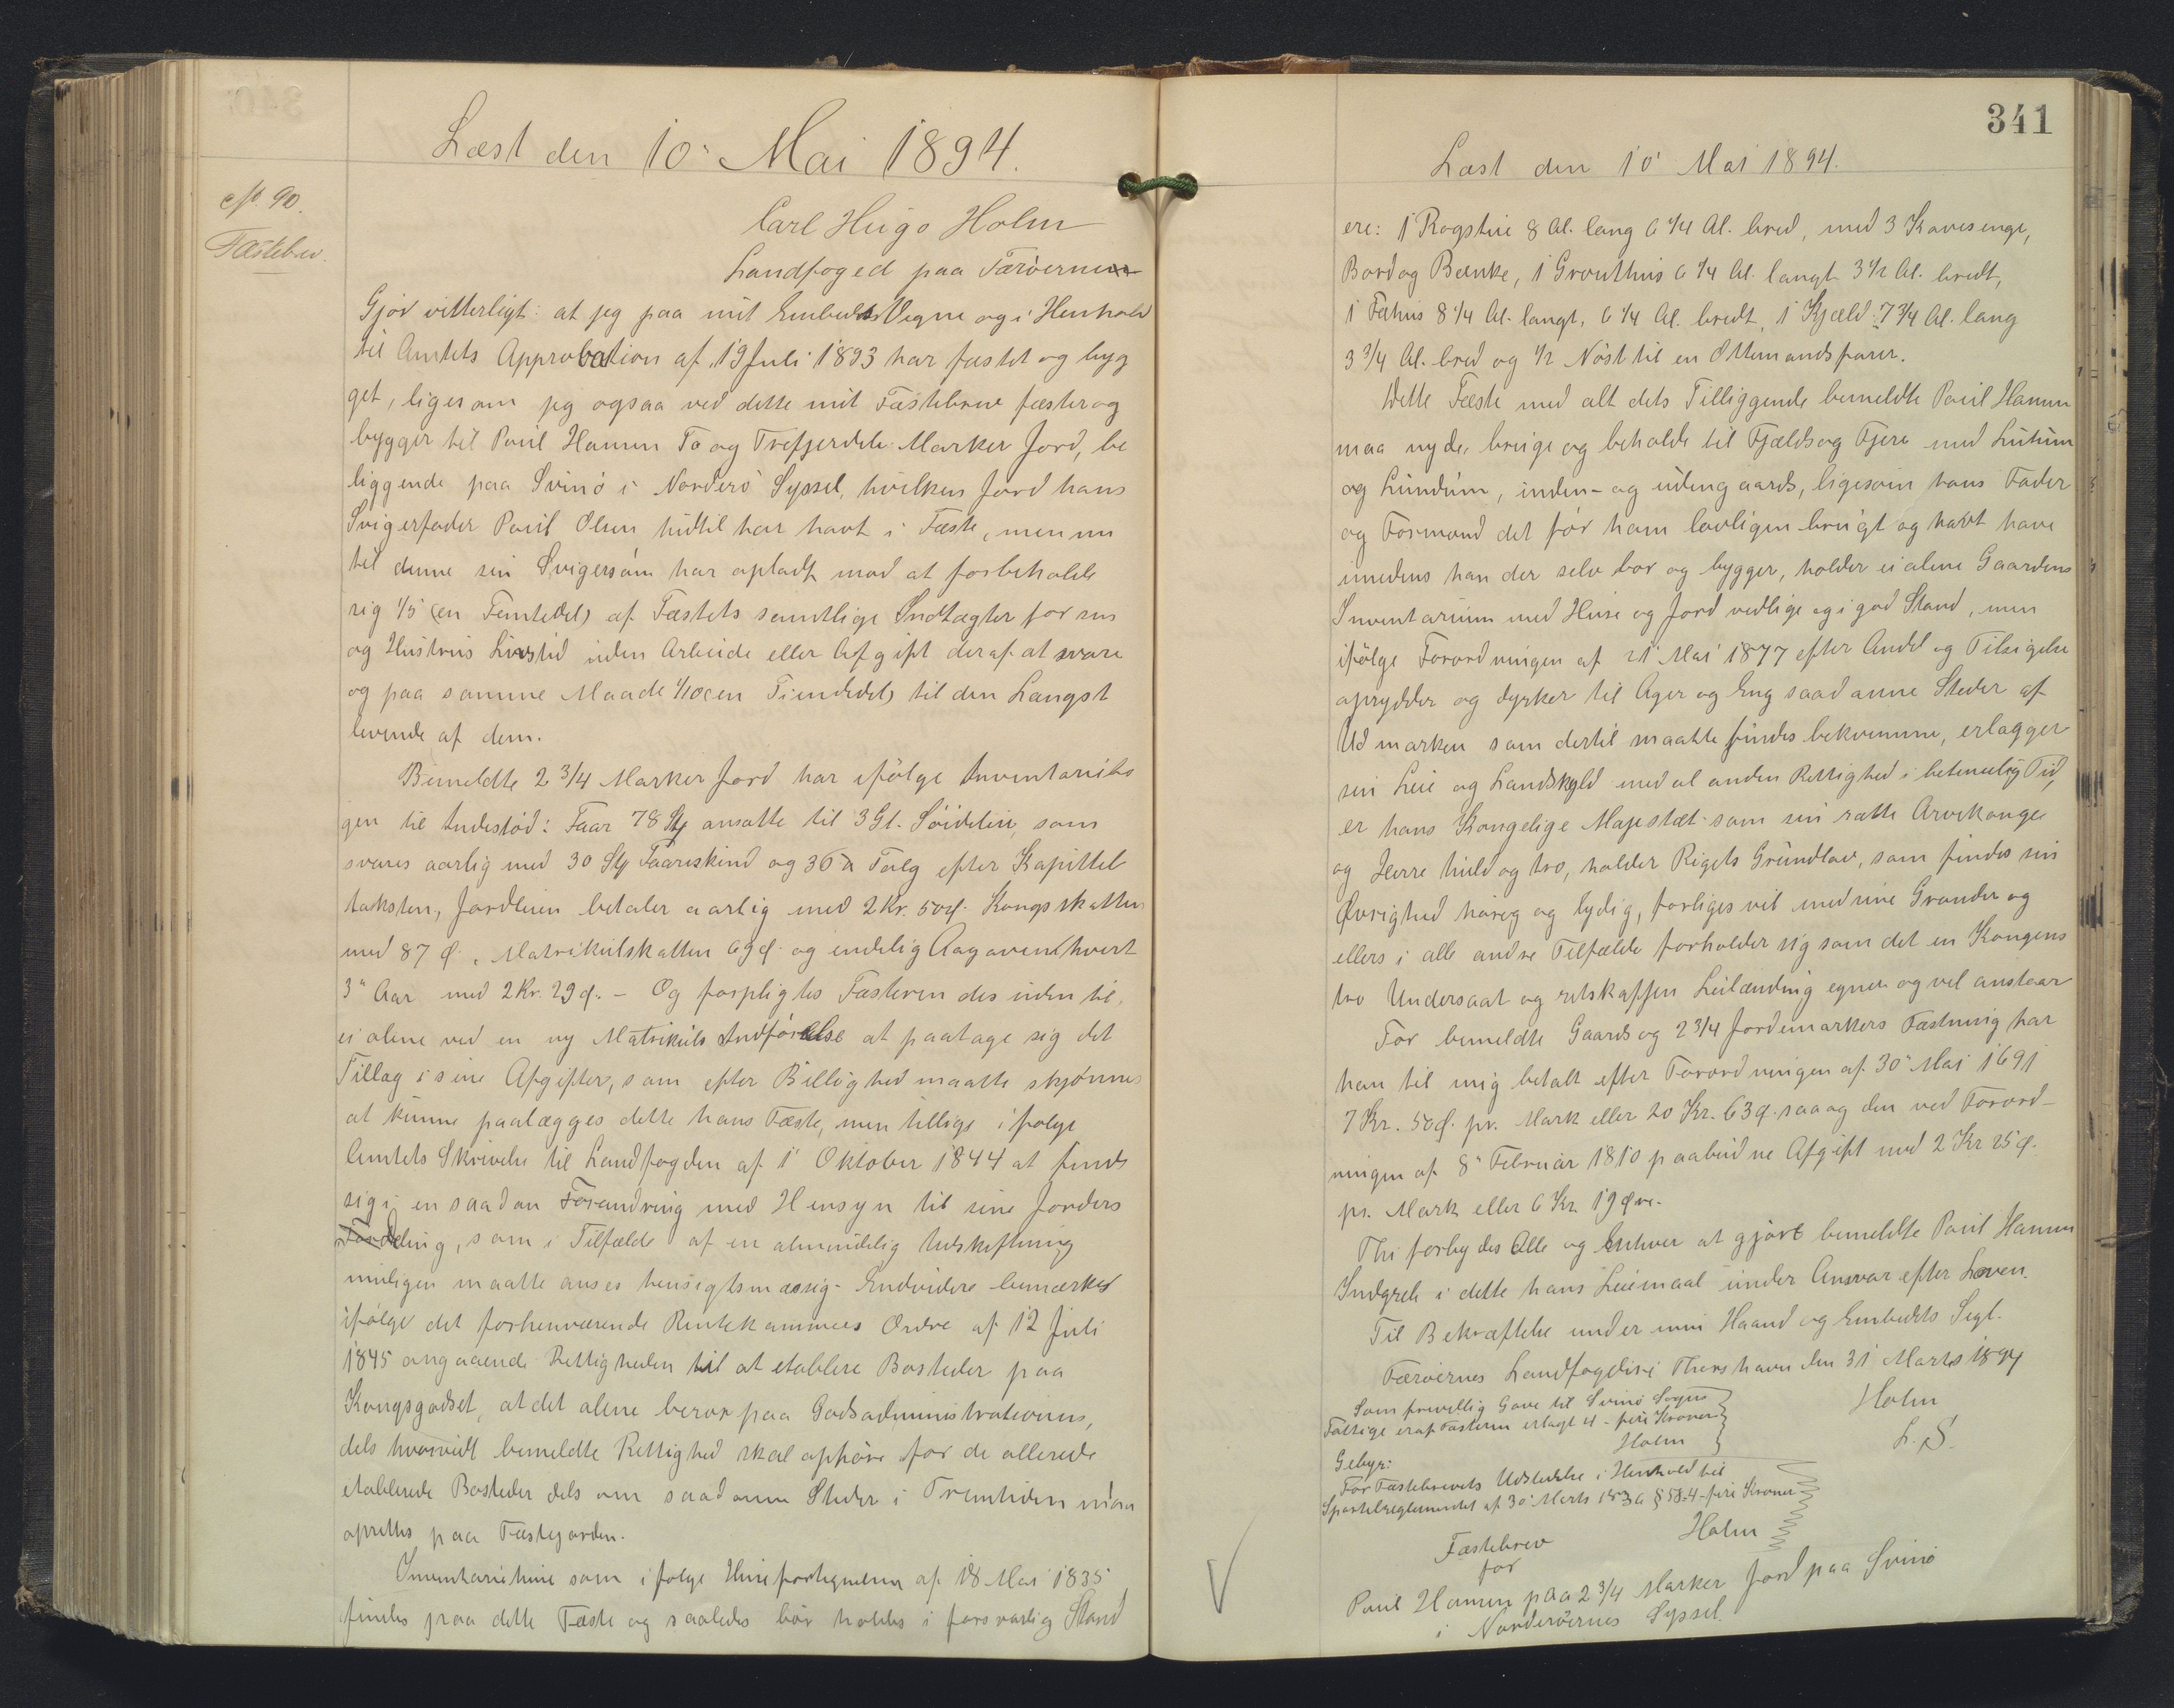 Læst den 10' Mai 1894.
No. 90.
Fæstebrev.
Carl Hugo Holm
Landfoged paa Færøerne
Gjør vitterligt: at jeg paa mit Embeds Vegne og i Henhold
til Amtets Approbation af 19 Juli 1893 har fæstet og byg
get, ligesom jeg ogsaa ved dette mit Fæstebrev fæster og
bygger til Poul Hansen To og Trefjerdele Marker Jord, be
liggende paa Svinø i Norderø Syssel, hvilken Jord hans
Svigerfader Poul Olsen hidtil har havt i Fæste, men nu
til denne sin Svigersøn har opladt mod at forbeholde
sig 1/5 (en Femtedel) af Fæstets samtlige Indtægter for sin
og Hustrus Livstid uden Arbeide eller Afgift deraf at svare
og paa samme Maade 1/10 (en Tiendedel) til den Længst
levende af dem.
Bemeldte 2 3/4 Marker Jord har ifølge Inventariebo
gen til Indestød: Faar 78 Stk ansatte til 3 Gl. Søidelin, som
svares aarlig med 30 Stk Faareskind og 36 ℔ Talg efter Kapittel
taksten, Jordleien betaler aarlig med 2 Kr. 50 Ø. Kongsskatten
med 87 Ø., Matrikulskatten 69 Ø. og endelig Aagaven hvert
3" Aar med 2 Kr. 29 Ø. - Og forpligtes Fæsteren des uden til,
ei alene ved en ny Matrikuls Indførelse at paatage sig det
Tillæg i sine Afgifter, som efter Billighed maatte skjønnes
at kunne paalægges dette hans Fæste, men tillige ifølge
Amtets Skrivelse til Landfogden af 1' Oktober 1844 at finde
sig i en saadan Forandring med Hensyn til sine Jorders
Fordeling, som i Tilfælde af en almindelig Udskiftning
muligen maatte anses hensigtsmæssig - Endvidere bemærkes
ifølge det forhenværende Rentekammers Ordre af 12 Juli
1845 angaaende Rettigheden til at etablere Bosteder paa
Kongsgodset, at det alene beror paa Godsadministrationen,
dels hvorvidt bemeldte Rettighed skal ophøre for de allerede
etablerede Bosteder dels om saadanne Steder i Fremtiden maa
oprettes paa Fæstejorden.
Inventariehuse som ifølge Husefortegnelsen af 18 Mai 1835
findes paa dette Fæste og saaledes bør holdes i forsvarlig Stand
341
Læst den 10' Mai 1894.
ere: 1 Rogstue 8 Al. lang 6 1/4 Al. bred, med 3 Kovesenge,
Bord og Bænke, 1 Grouthus 6 1/4 Al. langt 3 1/2 Al. bredt,
1 Fæhus 8 1/4 Al. langt, 6 1/4 Al. bredt, 1 Kjæld 7 3/4 Al. lang
3 3/4 Al. bred og 1/2 Nøst til en Ottemandsfarer.
Dette Fæste med alt dets Tilliggende bemeldte Poul Hansen
maa nyde, bruge og beholde til Fjelds og Fjere med Lutum
og Lundum, inden- og udengaards, ligesom hans Fader
og Formand det før ham lovligen brugt og havt have
imedens han der selv bor og bygger, holder ei alene Gaardens
Inventarium med Huse og Jord vedlige og i god Stand, men
ifølge Forordningen af 21' Mai 1877 efter Andel og Tilsigelse
oprydder og dyrker til Ager og Eng saadanne Steder af
Udmarken som dertil maatte findes bekvemme, erlægger
sin Leie og Landskyld med al anden Rettighed i betimelig Tid,
er hans Kongelige Majestæt som sin rætte Arvekonge
og Herre huld og tro, holder Rigets Grundlov, som findes sin
Øvrighed hørig og lydig, forliges vel med sine Grander og
ellers i alle andre Tilfælde forholder sig som det en Kongens
tro Undersaat og retskaffen Leilænding egner og vel anstaar
For bemeldte Gaards og 2 3/4 Jordemarkers Fæstning har
han til mig betalt efter Forordningen af 30' Mai 1691
7 Kr. 50 Ø. pr. Mark eller 20 Kr. 63 Ø. saa og den ved Forord-
ningen af 8' Februar 1810 paabudne Afgift med 2 Kr 25 Ø.
pr. Mark eller 6 Kr. 19 Øre.
Thi forbydes Alle og Enhver at gjøre bemeldte Poul Hansen
Indgreb i dette hans Leiemaal under Ansvar efter Loven.
Til Bekræftelse under min Haand og Embedets Segl.
Færøernes Landfogderi Thorshavn den 31' Marts 1894
Holm
L.S.
Som frivillig Gave til Svinø Sogns
Fattige er af Fæsteren erlagt 4 - fire Kroner
Holm
Gebyr:
For Fæstebrevets Udstedelse i Henhold til
Sportelreglementet af 30' Marts 1836 § 58. 4 - fire Kroner
Holm
Fæstebrev
for
Poul Hansen paa 2 3/4 Marker Jord paa Svinø
i Norderøernes Syssel.